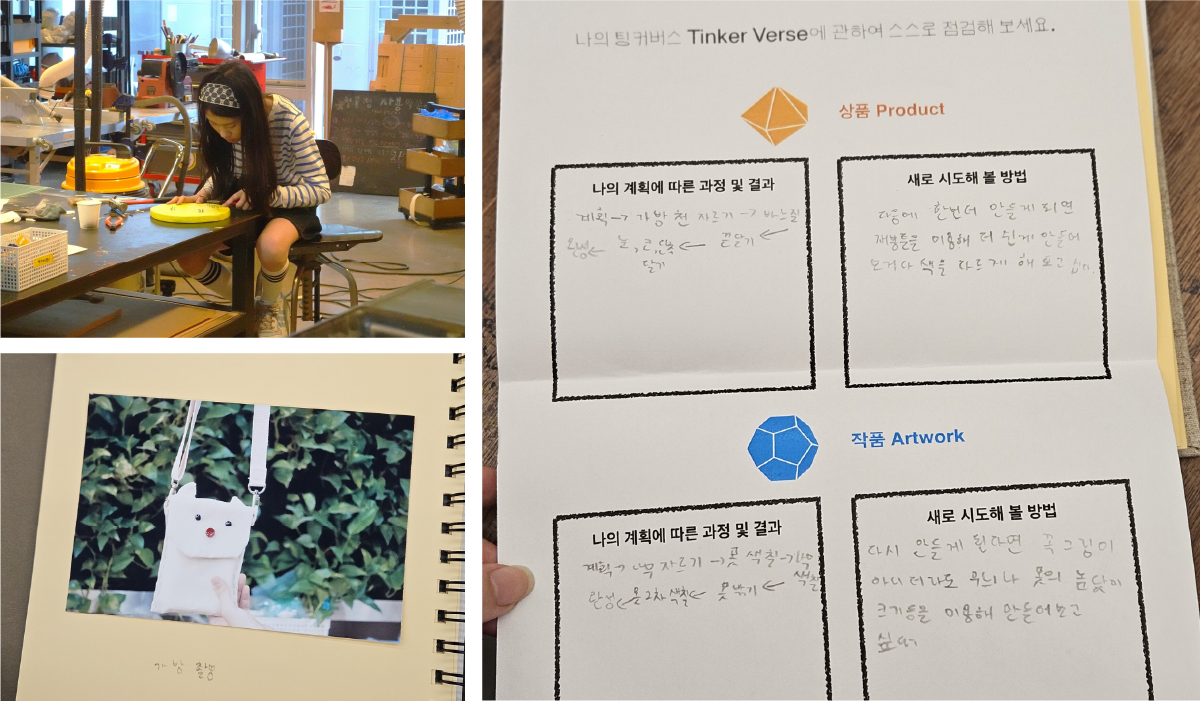 나의 팅커버스 Tinker Verse에 관하여 스스로 점검해 보세요.
상품 Product
나의 계획에 따른 과정 및 결과
계획→ 가방 천 자르기 → 바느질
완성← 눈,코,단추 ← 끈달기 ←
달기
새로 시도해 볼 방법
다음에 한번더 만들게 되면
재봉틀을 이용해 더 쉽게 만들어
보거나 색을 다르게 해 보고 싶다.
작품 Artwork
나의 계획에 따른 과정 및 결과
계획→ 나무 자르기 →못 색칠→나무
색칠
완성←못 2차 색칠← 못 박기 ←
새로 시도해 볼 방법
다시 만들게 된다면 꼭 그림이
아니더라도 무늬나 못의 높낮이
크기등을 이용해 만들어보고
싶다
가방